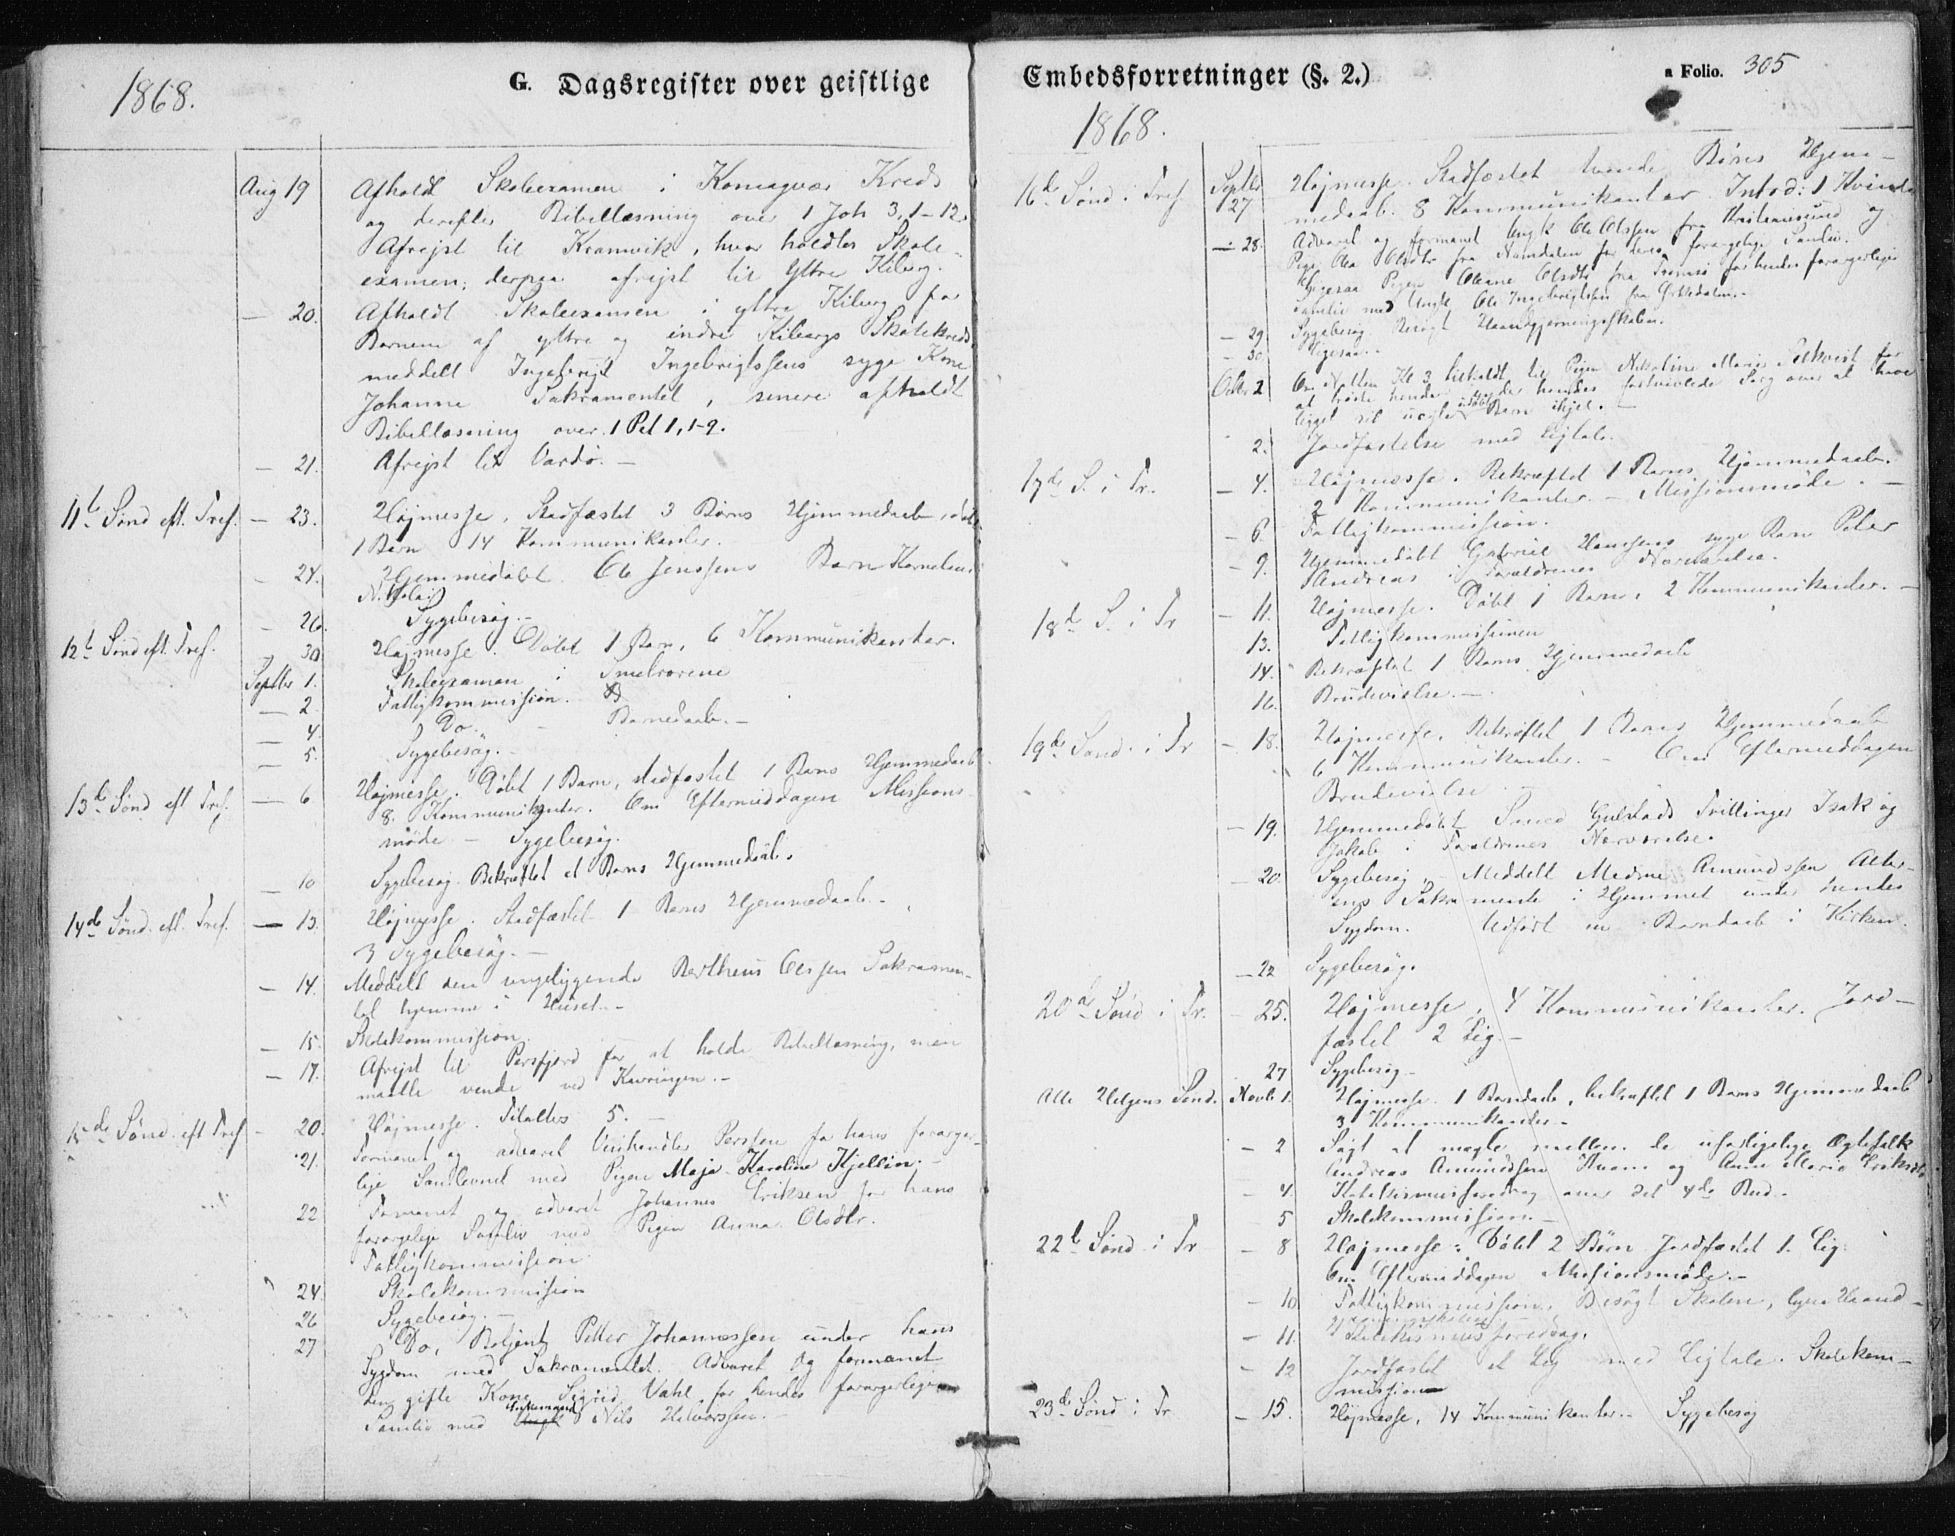 G. Dagsregister over geistlige
1868.
Aug 19 Afholdt Skoleexamen i Komagvær Kreds
og derefter Bibellæsning over 1 Joh 3,1-12.
Afrejst til Kramvik, hvor holdtes Skole-
examen; derpaa afrejst til Yttre Kiberg.
— 20. Afholdt Skoleexamen i yttre Kiberg for
Børnene af yttre og indre Kibergs Skolekreds
meddelt Ingebrigt Ingebrigtssens syge Kone
Johanna Sakramentet, senere afholdt
Bibellæsning over 1 Pet 1,1-9.
— 21. Afrejst til Vardø. —
11te Sønd eft. Tref. — 23. Højmesse, Stadfæstet 3 Børns Hjemmedaab, døbt
1 Barn 14 Kommunikanter.
— 24. Hjemmedøbt Ole Jenssens Barn Kornelius
Nikolai
— 26. Sygebesøg. —
12te Sønd eft. Tref. — 30 Højmesse. Døbt 1 Barn, 6 Kommunikanter.
Septbr 1. Skoleexamen i Smelrorene
— 2 Fattigkommission.
— 4. Do. — Barnedaab. —
— 5. Sygebesøg. —
13de Sønd eft Tref. — 6 Højmesse. Døbt 1 Barn, stadfæstet 1 Barns Hjemmedaab
8. Kommunikanter. Om Eftermiddagen Missions-
møde — Sygebesøg.
— 10 Sygebesøg. Bekræftet et Barns Hjemmedåb.
14de Sønd. eft. Tref. — 13. Højmesse. Stadfæstet 1 Barns Hjemmedaab. —
3 Sygebesøg. —
— 14. Meddelt den sygeliggende Bertheus Olssen Sakramen-
tet hjemme i Huset. —
— 15. Skolekommission.
— 17. Afrejst til Persfjord for at holde Bibellæsning, men
maatte vende ved Kavringen. —
15de Sønd. eft Tref — 20. Højmesse. Tilaltes 5. —
21. Formanet og advaret Vinhandler Perssen for hans forarge-
lige Samlevnet med Pigen Maja Karolina Kjellin. —
22 Formanet og advaret Johannes Eriksen for hans
forargelige Samliv med Pigen Anna Olsdtr.
Fattigkommission
24. Skolekommission
26 Sygebesøg. —
27 Do, Betjent Petter Johannessen under hans
Sygdom med Sakramentet. Advaret og formanet
den gifte Kone Sigrid Vahl for hendes forargelige
Samliv med Enkemand Nils Halvorssen. —
Embedsforretninger (§. 2.)
a Folio. 305
1868.
16de Sønd. i Tref Septbr 27 Højmesse. Stadfæstet tvende Børns Hjem-
medaab. 8 Kommunikanter. Introd: 1 Kvinde
— 28. Advaret og formanet Ungk Ole Olssen fra Kristiansund og
Pige Ola Olsdtr fra Namdalen for deres forargelige Samliv.
Ligesaa Pigen Oleane Olsdtr fra Tromsø for hendes forargerlige
Samliv med Ungk. Ole Ingebrigtssen fra Ørkedalen. —
— 29 Sygebesøg. Besøgt Haandgjerningsskolen.
— 30 Ligesaa. —
Octbr 2 Om Natten Kl 3 tilkaldt til Pigen Nikoline Marie for
at trøste hende under hendes fortvivlede Sorg over at have
ligget sit uægte udøbte Barn ihjel. —
2. Jordfæstelse med Ligtale.
17de S. i Tr. — 4. Højmesse. Bekræftet 1 Barns Hjemmedaab.
2 Kommunikanter. — Missionsmøde. —
— 6. Fattigkommission.
— 9. Hjemmedøbt Gabriel Hanssens syge Barn Peter
Andreas i Forældrenes Nærværelse.
18de S. i Tr — 11. Højmesse. Døbt 1 Barn, 2 Kommunikanter. —
13. Fattigkommissionen
14. Bekræftet 1 Barns Hjemmedaab
16. Brudevielse. —
19de Sønd. i Tr — 18. Højmesse. Bekræftet 1 Barns Hjemmedaab
6 Kommunikanter. — Om Eftermiddagen
Brudevielse
— 19. Hjemmedøbt Smed Gulstads Tvillinger Isak og
Jakob i Forældrenes Nærværelse.
— 20. Sygebesøg, — Meddelt Madme Amundssen Alter-
ens Sakramente i Hjemmet under hendes
Sygdom. Udført en Barndaab i Kirken.
— 22 Sygebesøg.
20de Sønd i Tr. — 25. Højmesse, 4 Kommunikanter. Jord-
fæstet 2 Lig. —
27 Sygebesøg —
Alle Helgens Sønd. Novbr 1. Højmesse. 1 Barndaab, bekræftet 1 Barns Hjemmedaab
3 Kommunikanter. —
— 2 Søgt at mægle mellem de uforligelige Ægtefolk
Andreas Amundssen og Anne Marie Eriksdtr
— 4. Katekismusforedrag over det 4de Bud. —
— 5 Skolekommission. —
22de Sønd i Tr — 8 Højmesse: Døbt 2 Børn Jordfæstet 1. Lig.
Om Eftermiddagen Missionsmøde. —
— 10 Fattigkommission. Besøgt Skolen, Haand-
— 11 Katekismusforedrag.
— 12 Jordfæstet et Lig med Ligtale. Skolekom-
mission
23de Sønd i Tr — 15. Højmesse, 14 Kommunikanter. — Sygebesøg